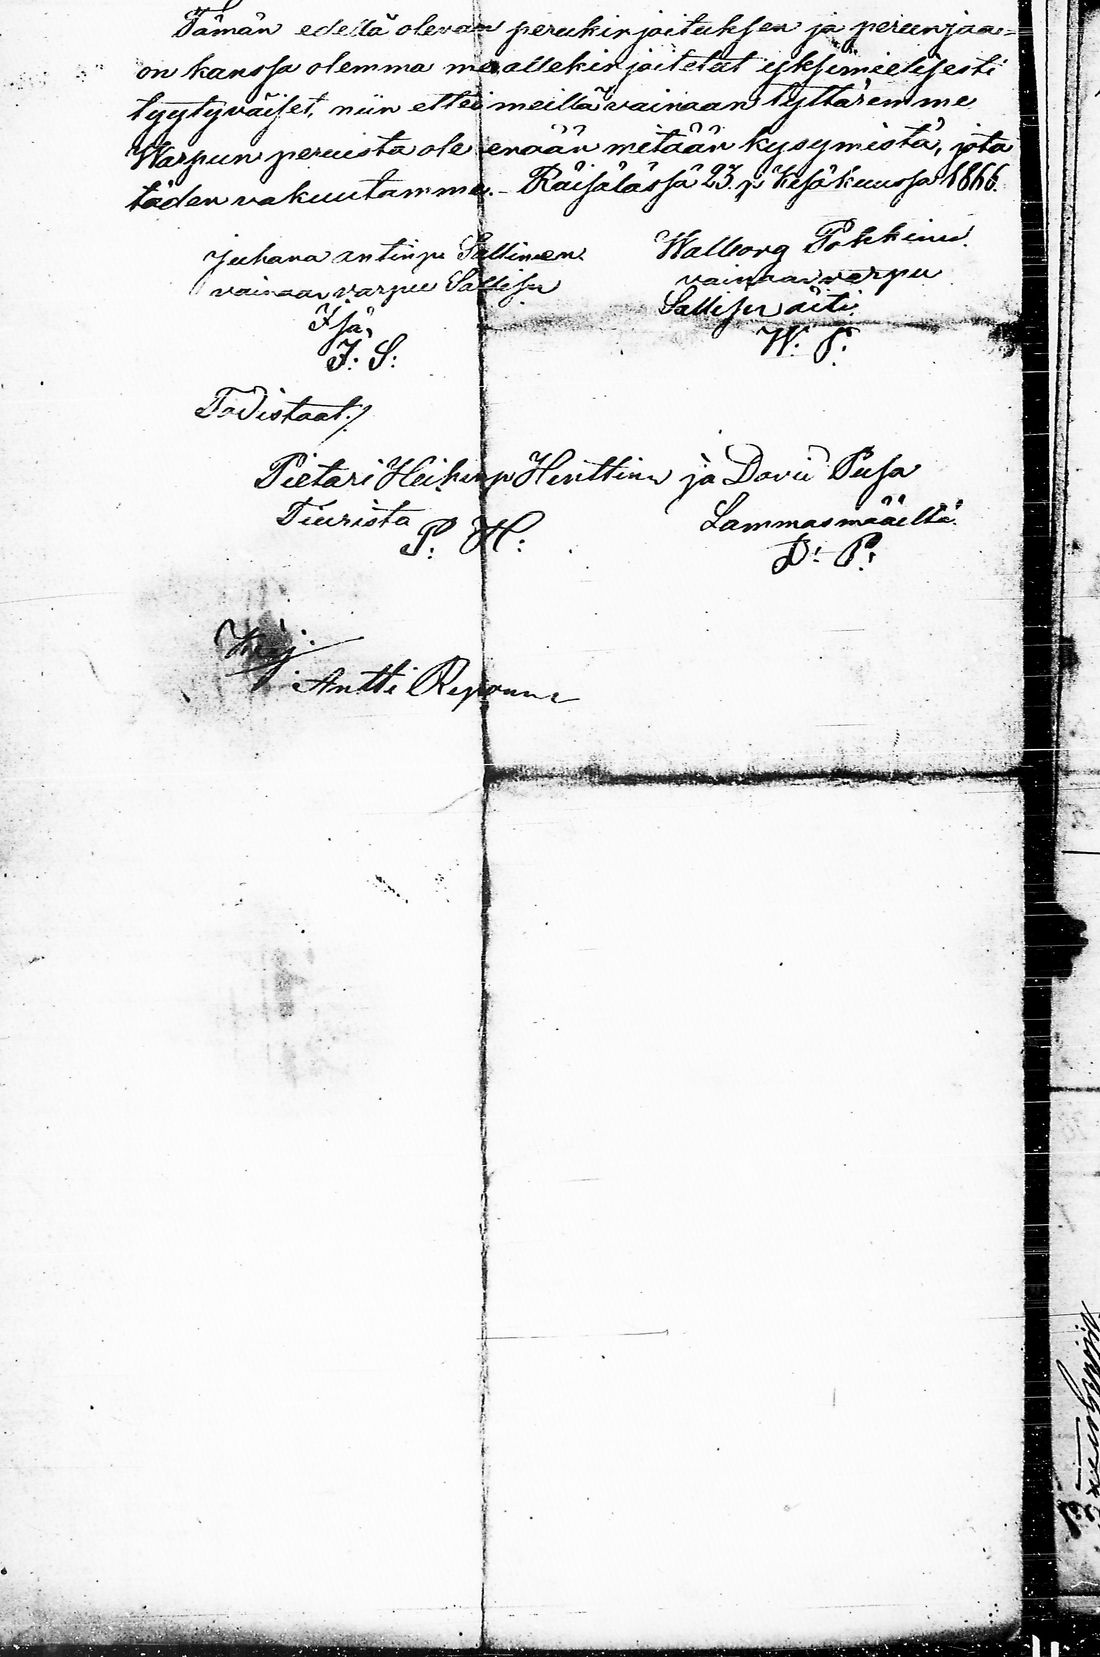 Tämän edellä olevan perukirjoituksen ja perunjaa=
on kanssa olemma me allekirjoitetut yksimielisesti
tyytyväiset, niin ettei meillä vainaan tyttäremme
Warpun peruista ole enään mitään kysymistä, jota
täden vakuutamme. - Räisälässä 23 p Kesäkuussa 1866.
Juhana antinp Sallinen Walborg Pokkinen
vainaan varpu Sallisen vainaan varpu
Isä, Sallisen äiti
J: S: W: P:
Todistaat:/
Pietari Heikinp Henttinen ja Davii Pusa
Tiurista Lammasmäeltä
P: H: D: P:
Kirj:
Antti Reponen